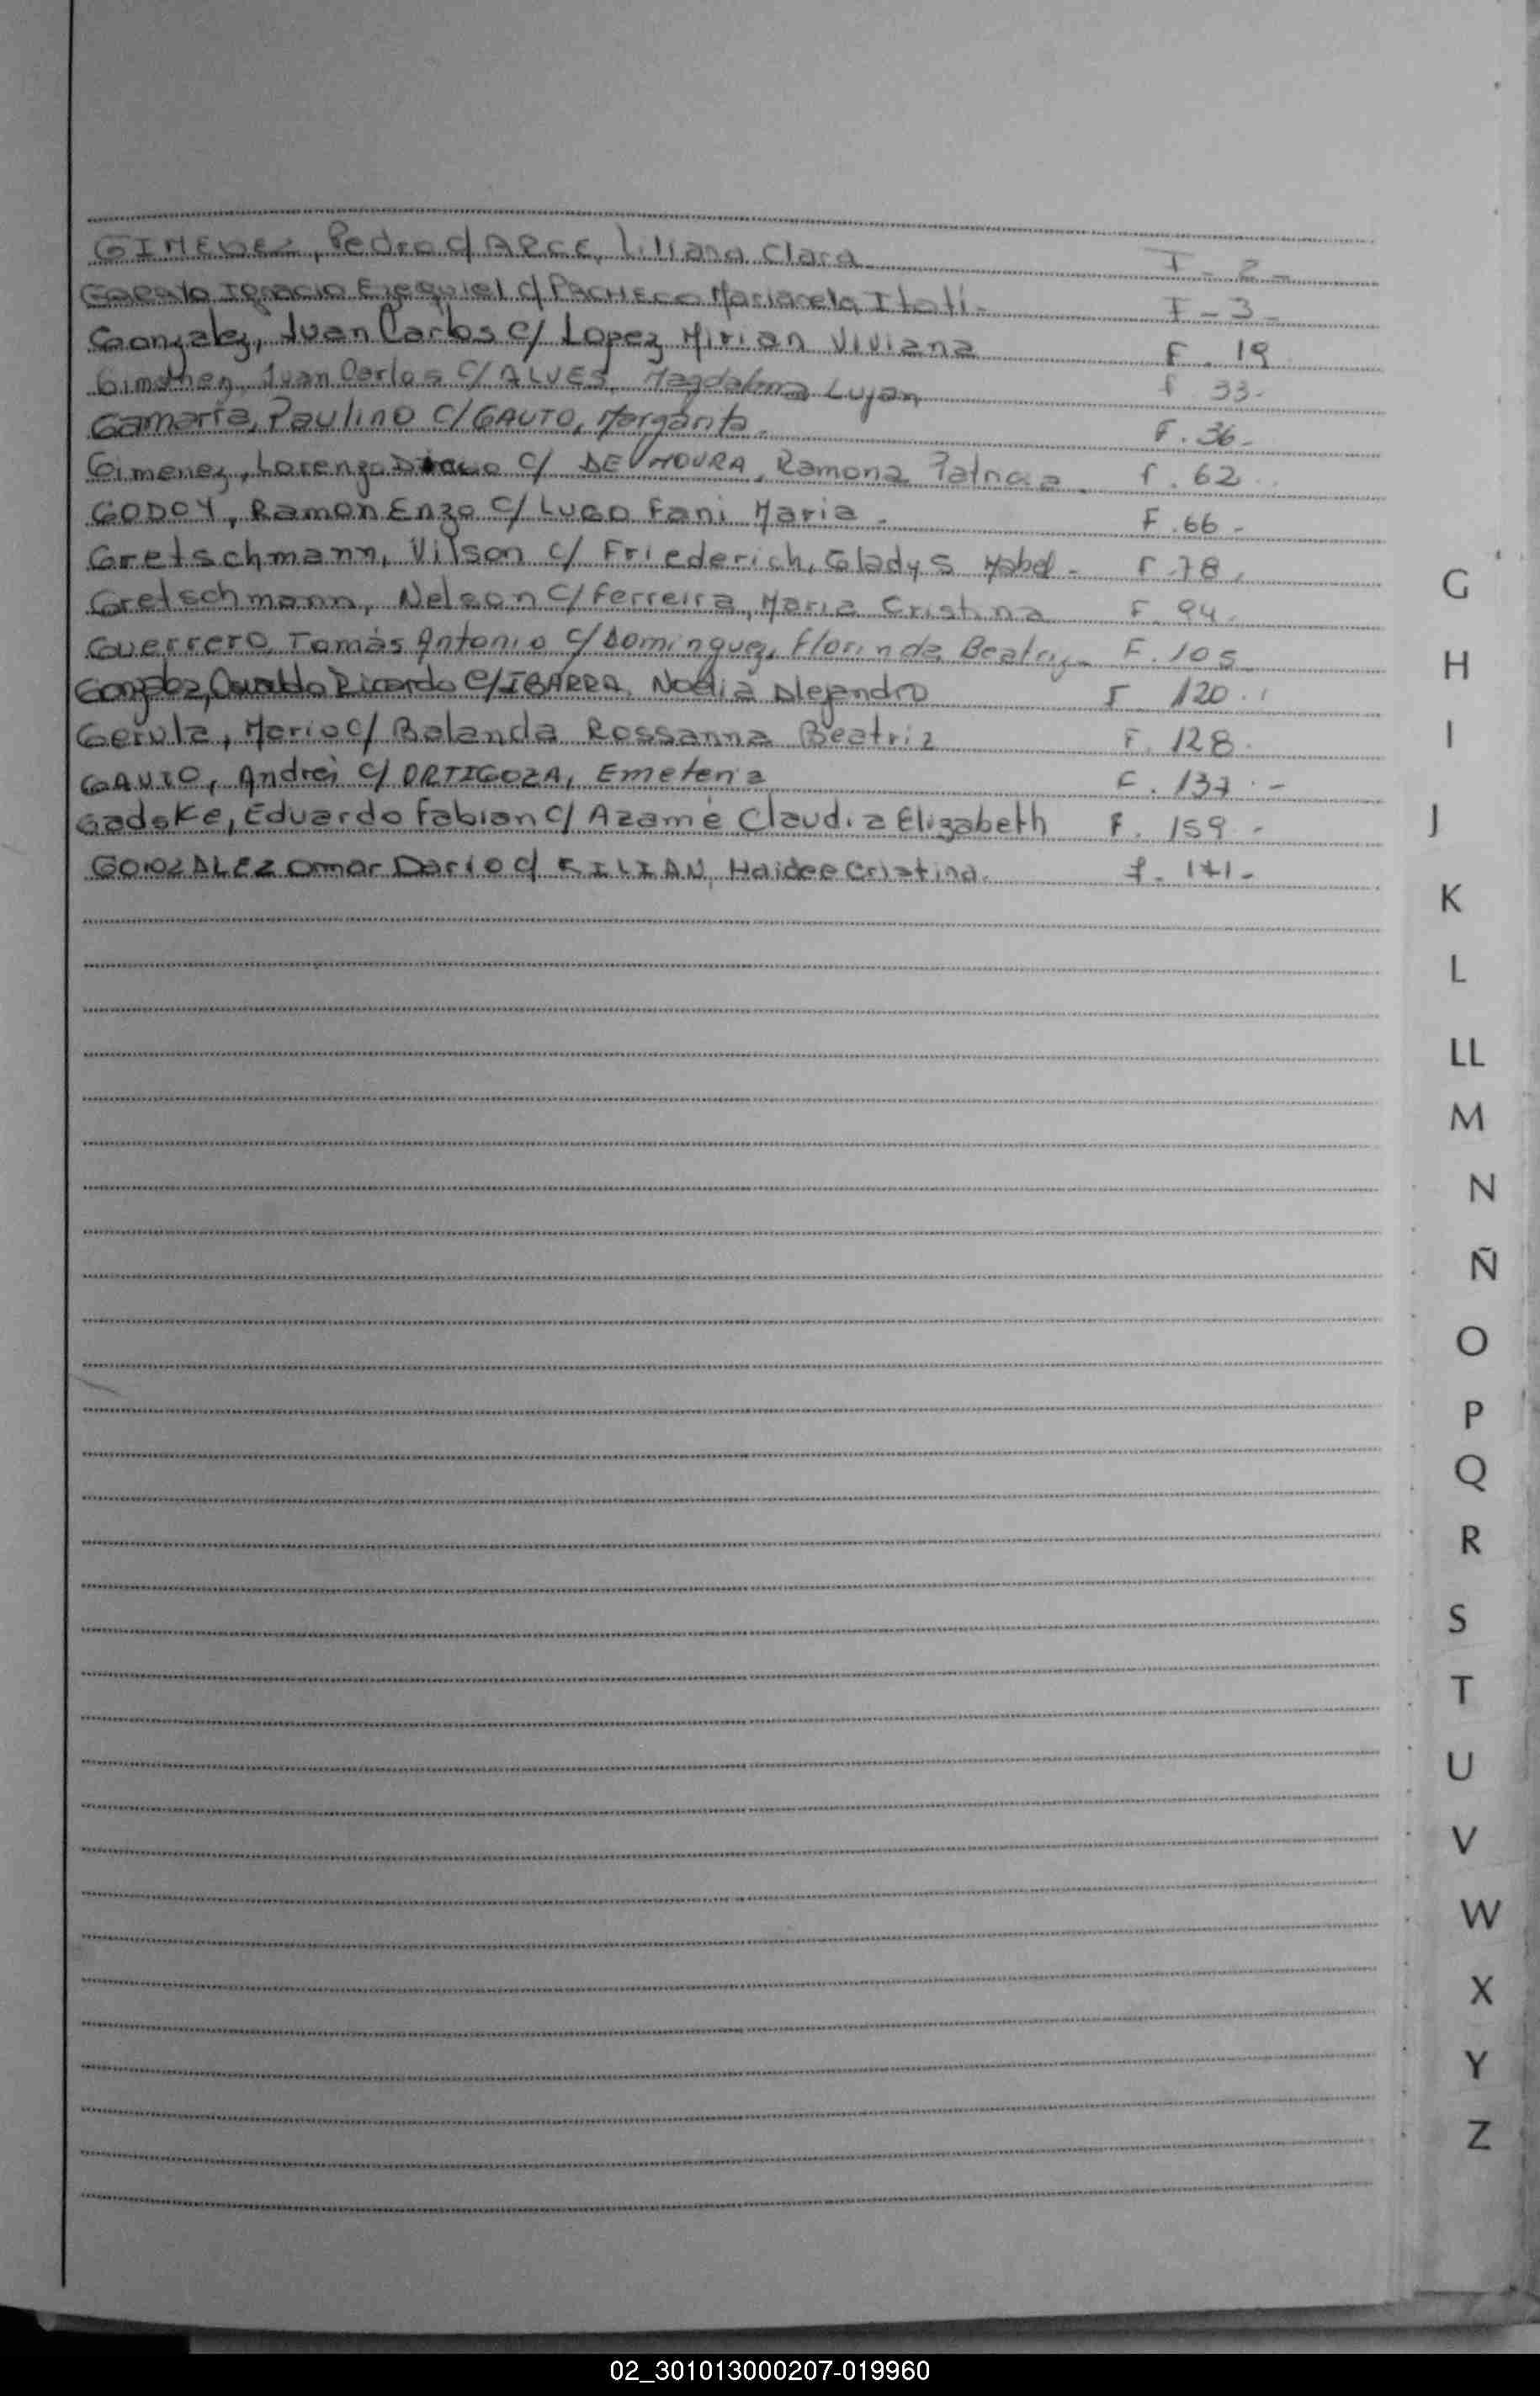 GIMENEZ, Pedro c/ ARCE, Liliana Clara F - 2 -
Ignacio Ezequiel c/ PACHECO Maricela Itatí - F - 3 -
Gonzalez, Juan Carlos c/ Lopez Mirian Viviana F. 19
Juan Carlos c/ ALVES, Magdalena Lujan f 33-
Gamarra, Paulino c/ GAUTO, Margarita. F. 36-
Gimenez, Lorenzo c/ DE MOURA, Ramona Patricia F. 62
GODOY, Ramon Enzo c/ LUGO Fani Maria - F. 66 -
Gretschmann, Vilson c/ Friederich, Gladys Mabel - F 78.
Gretschmann, Nelson c/ Ferreira, Maria Cristina F. 94.
Guerrero Tomás Antonio c/ Dominguez, Florinda Beatriz - F. 105
Gonzalez, Osvaldo Ricardo c/ IBARRA, Noelia Alejandra F 120
Gerula, Mario c/ Balanda Rossanna Beatriz F. 128.
GAUTO, Andrei c/ ORTIGOZA, Emeteria F. 137 . -
Gadske, Eduardo Fabian c/ Azame Claudia Elizabeth F. 159 -
GONZALEZ Omar Dario c/ KILIAN, Haidee Cristina. f. 171-
G
H
I
J
K
L
LL
M
N
Ñ
O
P
Q
R
S
T
U
V
W
X
Y
Z
02_301013000207-019960